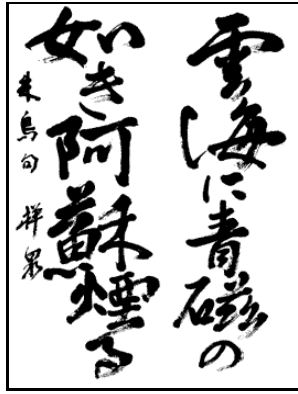 雲海に青磁の
如き阿蘇煙る
朱鳥句 祥泉